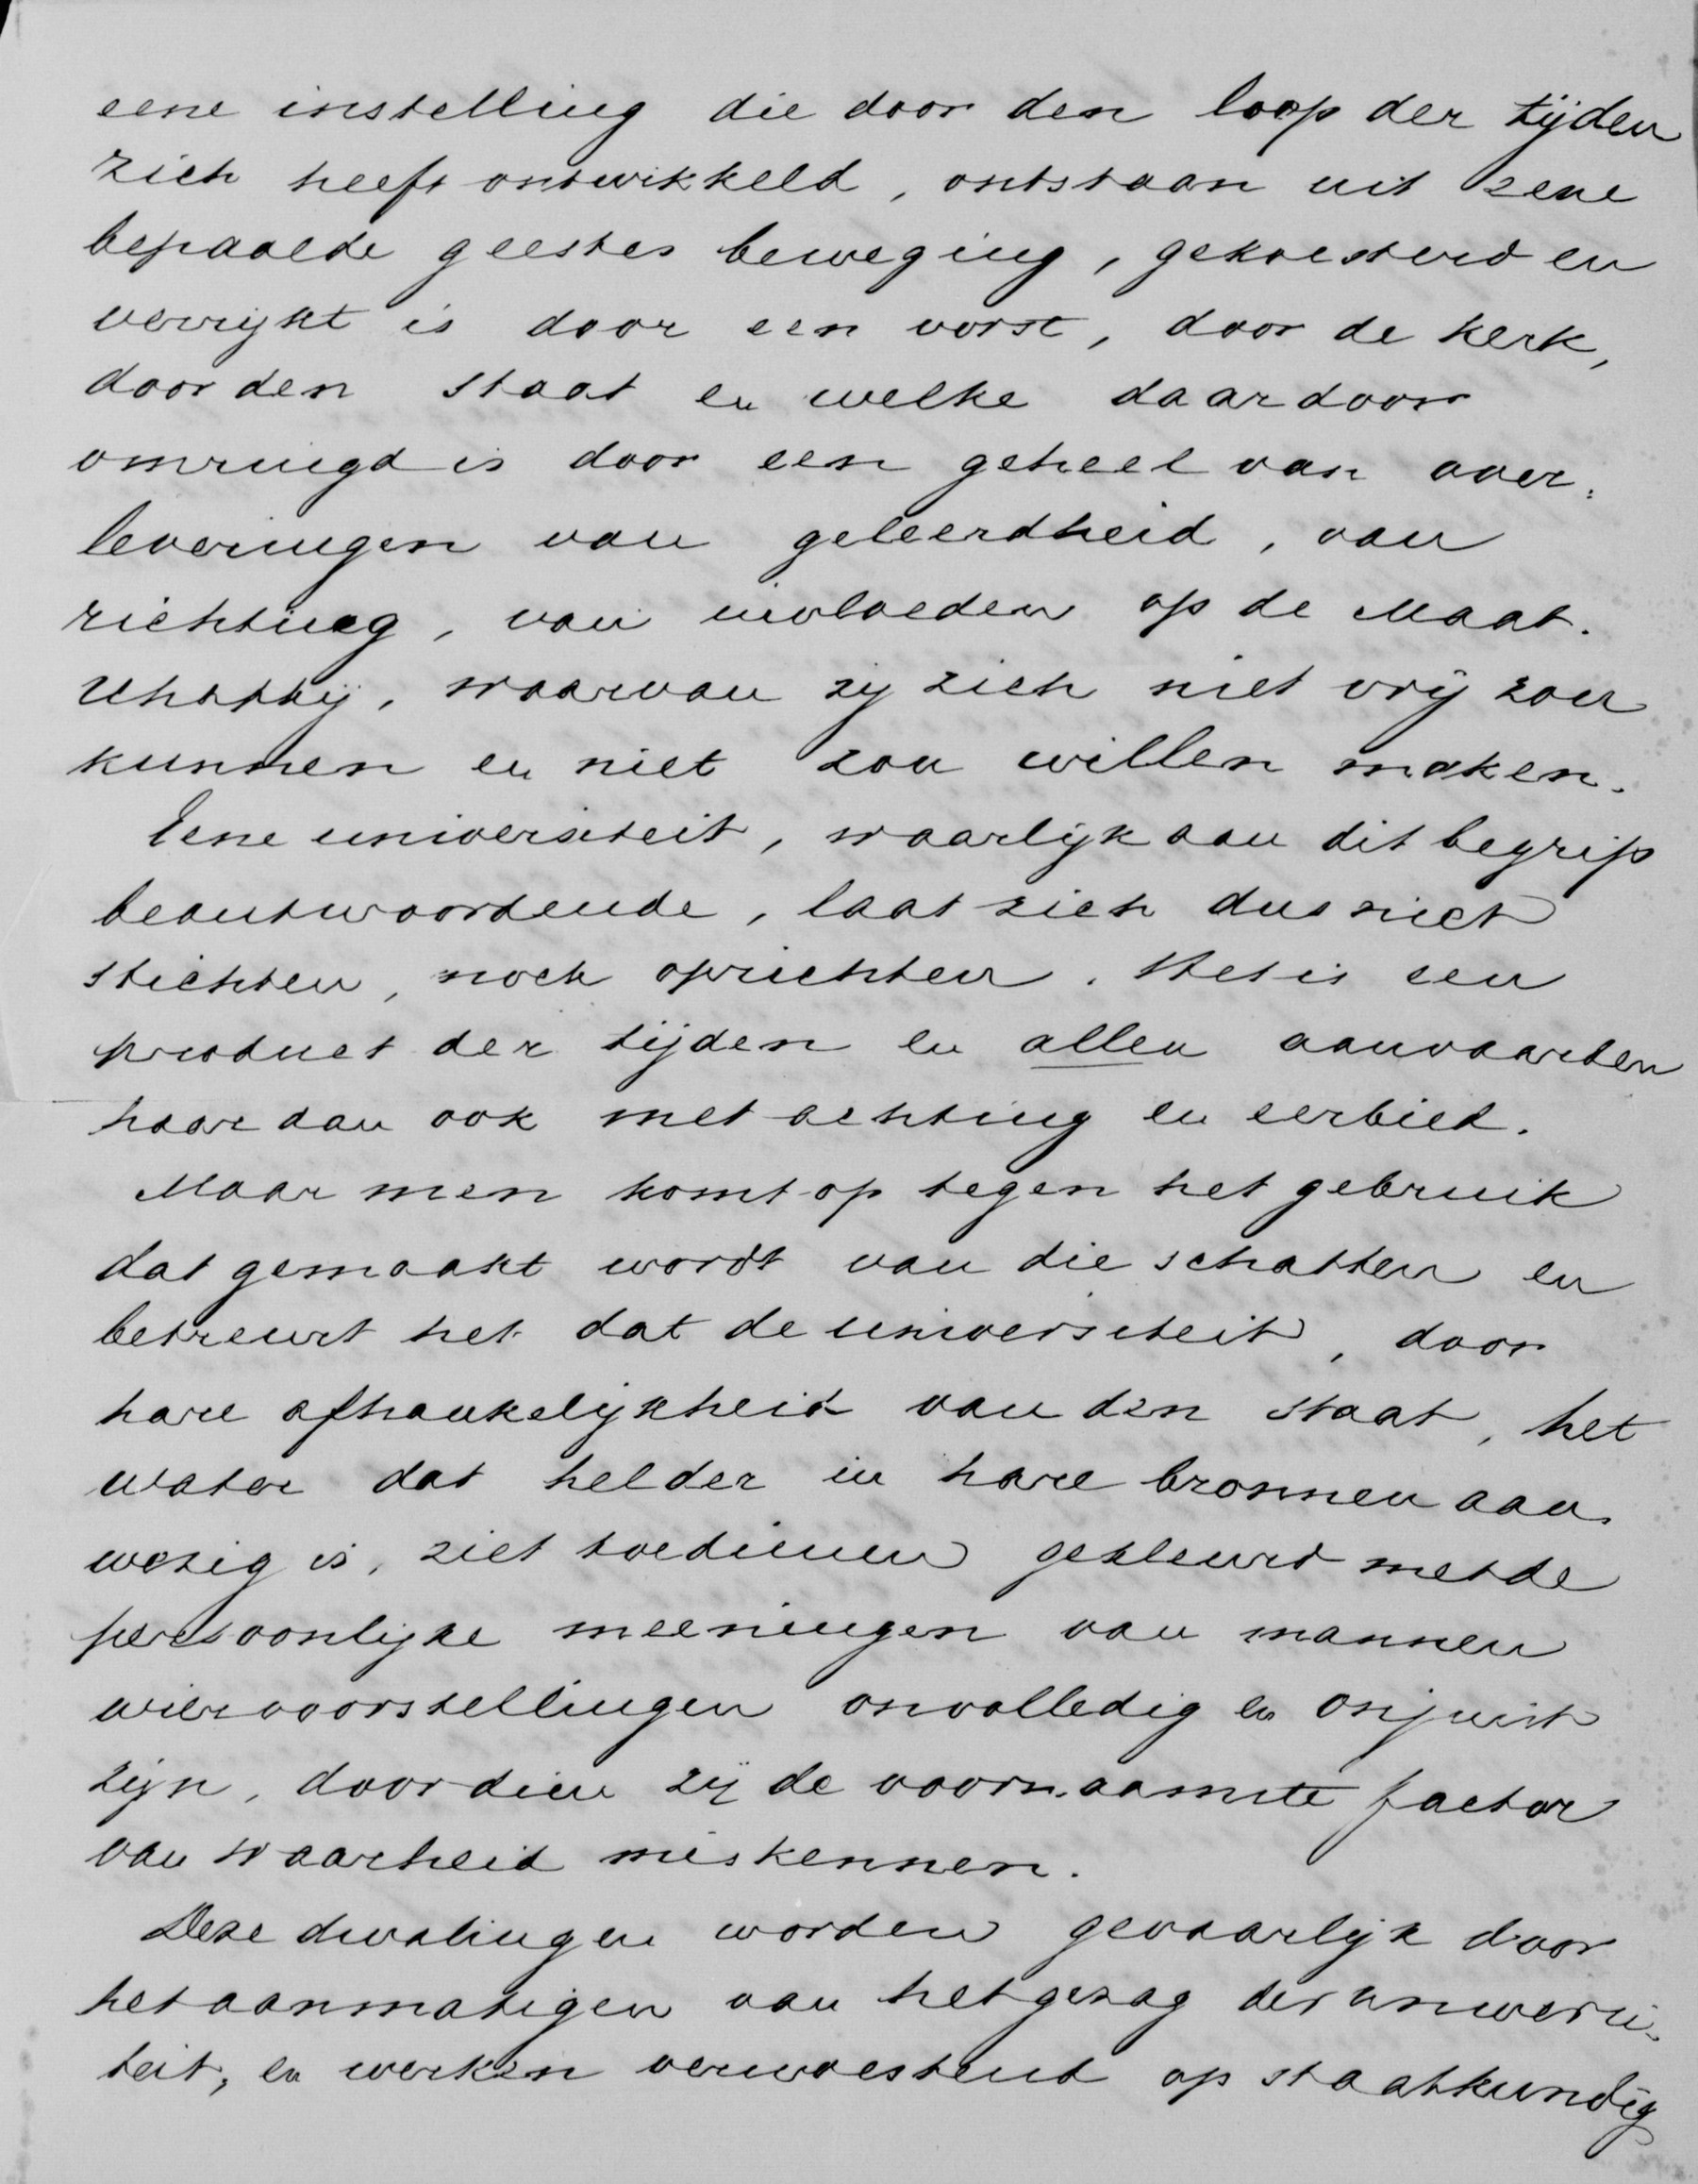 eene instelling die door den loop der tijden
zich heeft ontwikkeld, ontstaan uit eene
bepaalde geestes beweging, gekoesterd en
verrijkt is door een vorst, door de kerk,
door den staat en welke daardoor
omringd is door een geheel van over:
leveringen van geleerdheid, van
richting, van invloeden op de Maat.
schappij, waarvan zij zich niet vrij zou
kunnen en niet zou willen maken.
Eene universiteit, waarlijk aan dit begrip
beantwoordende, laat zich dus niet
stichten, noch oprichten. Het is een
product der tijden en allen aanvaarden
haar dan ook met achting en eerbied.
Maar men komt op tegen het gebruik
dat gemaakt wordt van die schatten en
betreurt het dat de universiteit, door
hare afhankelijkheid van den staat, het
water dat helder in hare bronnen aan.
wezig is, ziet toedienen gekleurd met de
persoonlijke meeningen van mannen
wier voorstellingen onvolledig en onjuist
zijn, doordien zij de voornaamste factor
van waarheid miskennen.
Deze dwalingen worden gevaarlijk door
het aanmatigen van het gezag der universi-
teit, en werken verwoestend op staatkundig